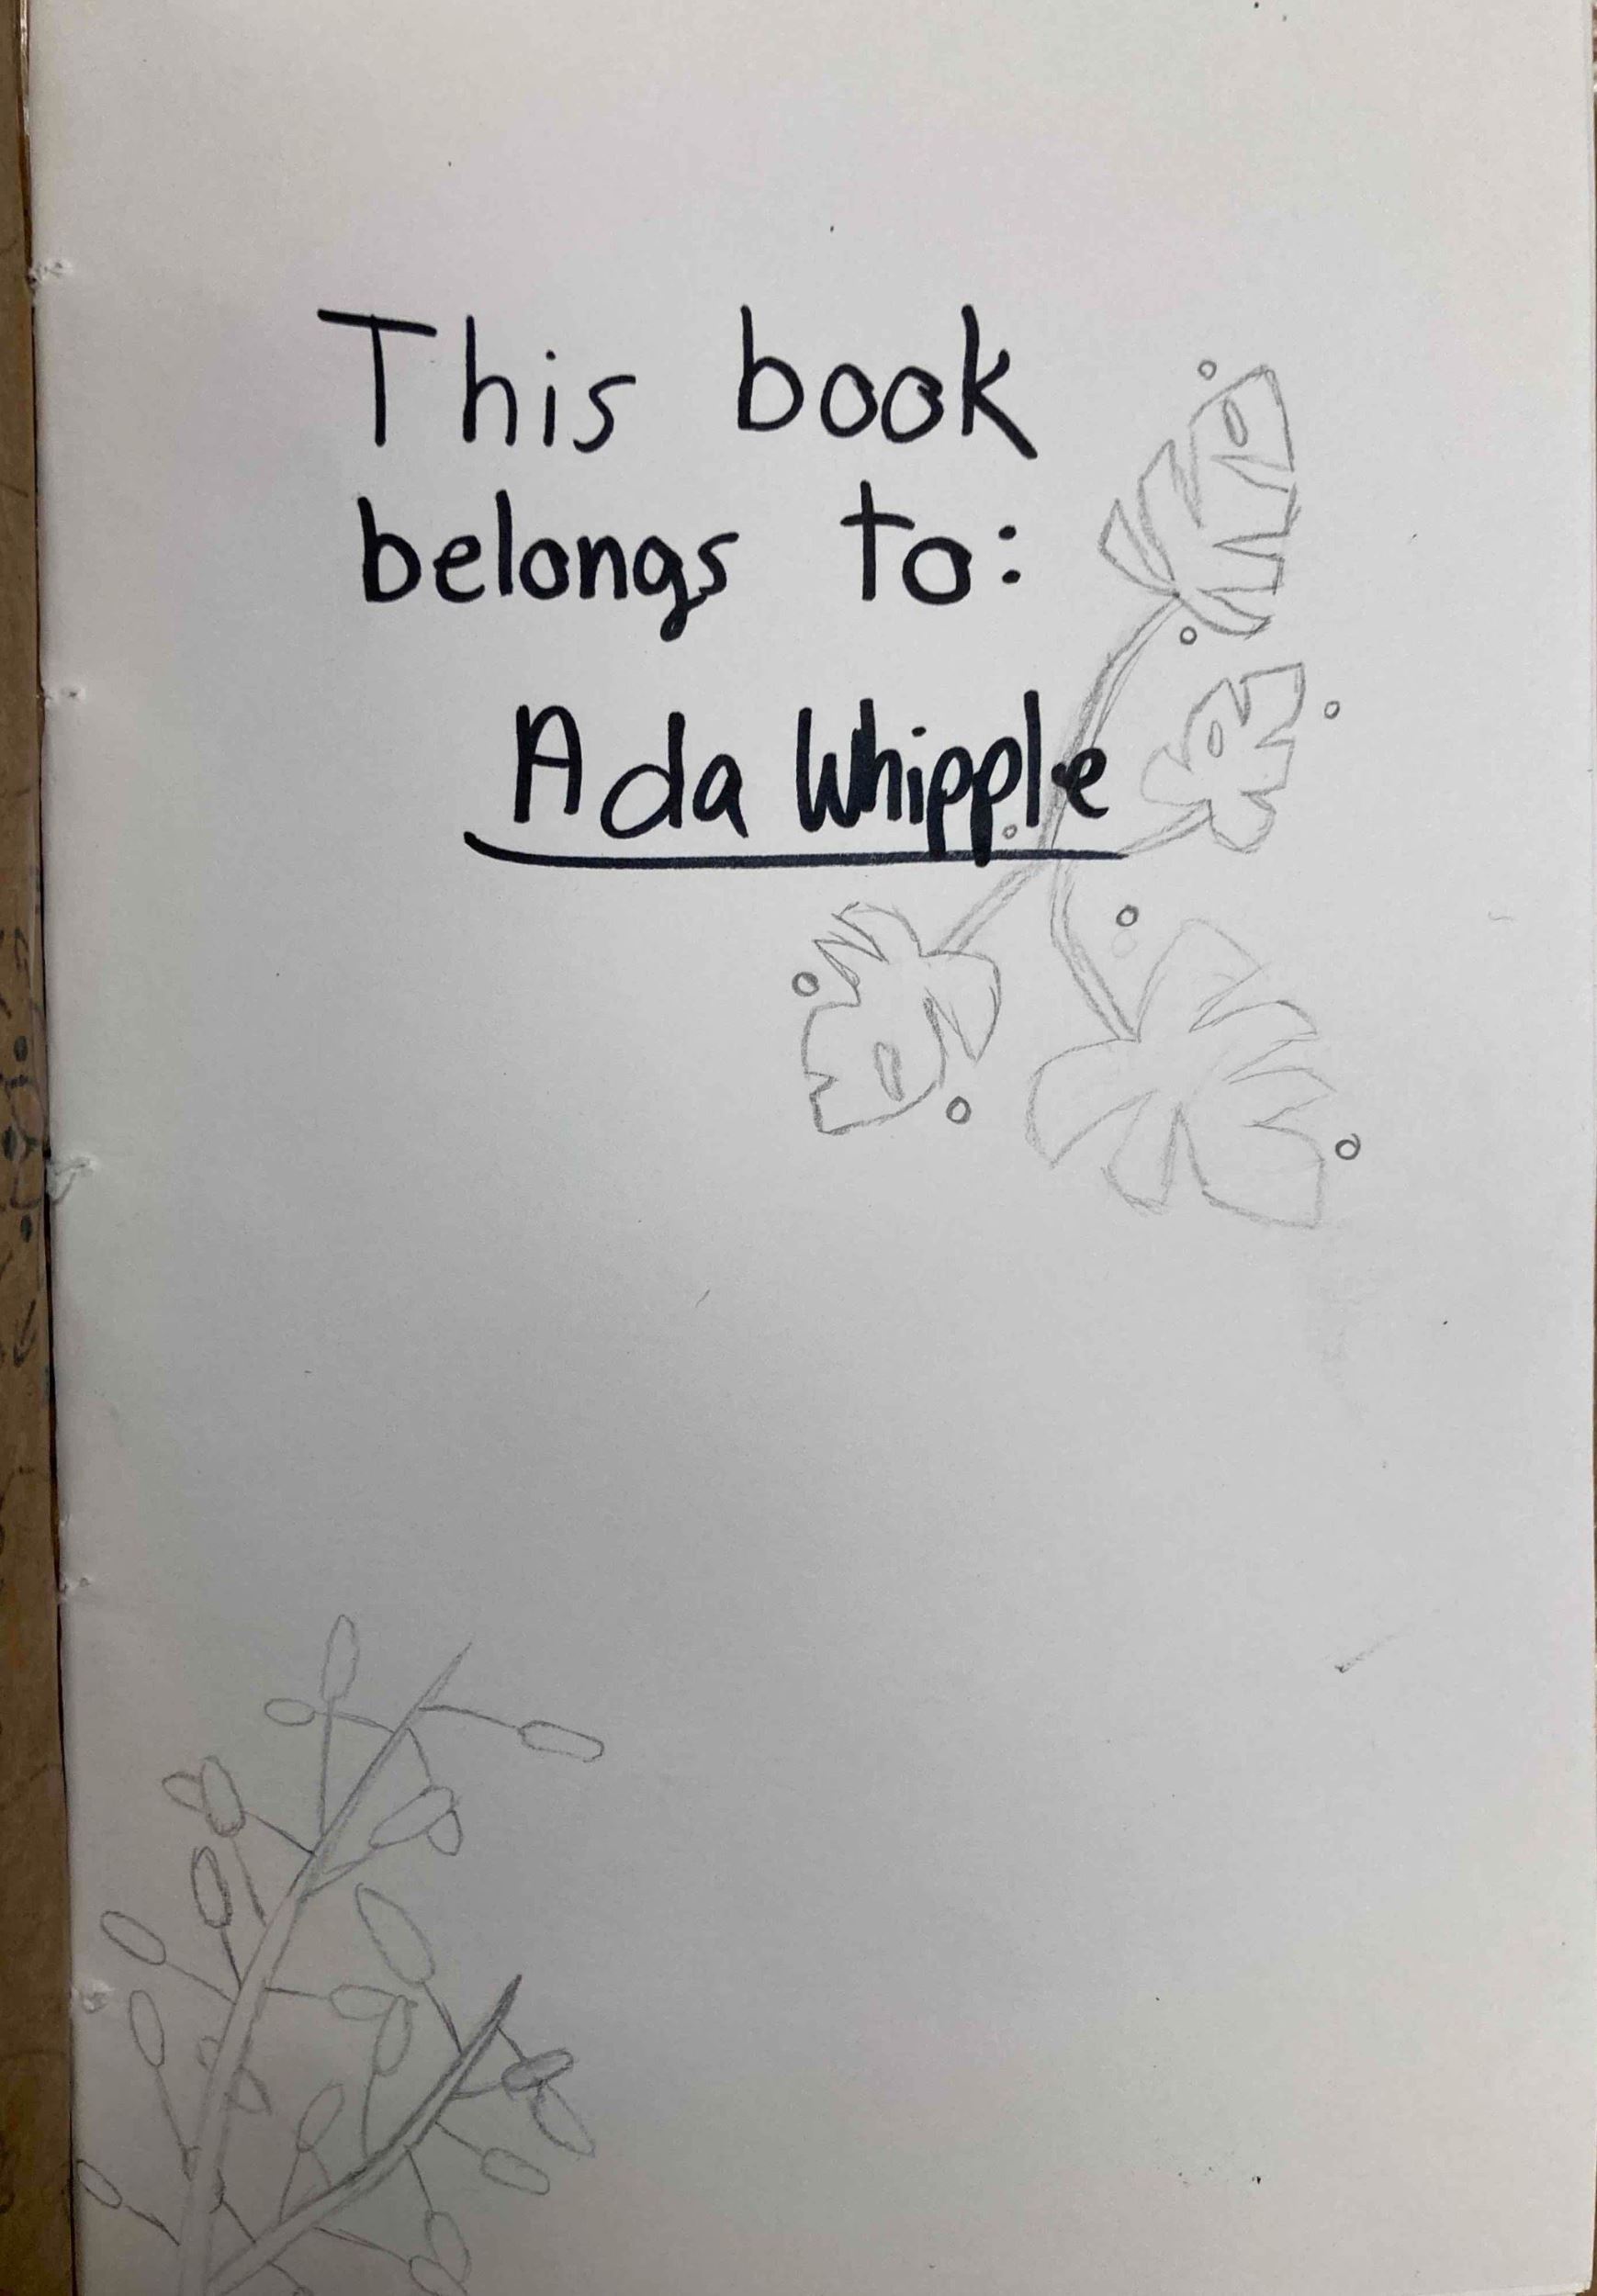 This book
belongs to:
Ada Whipple